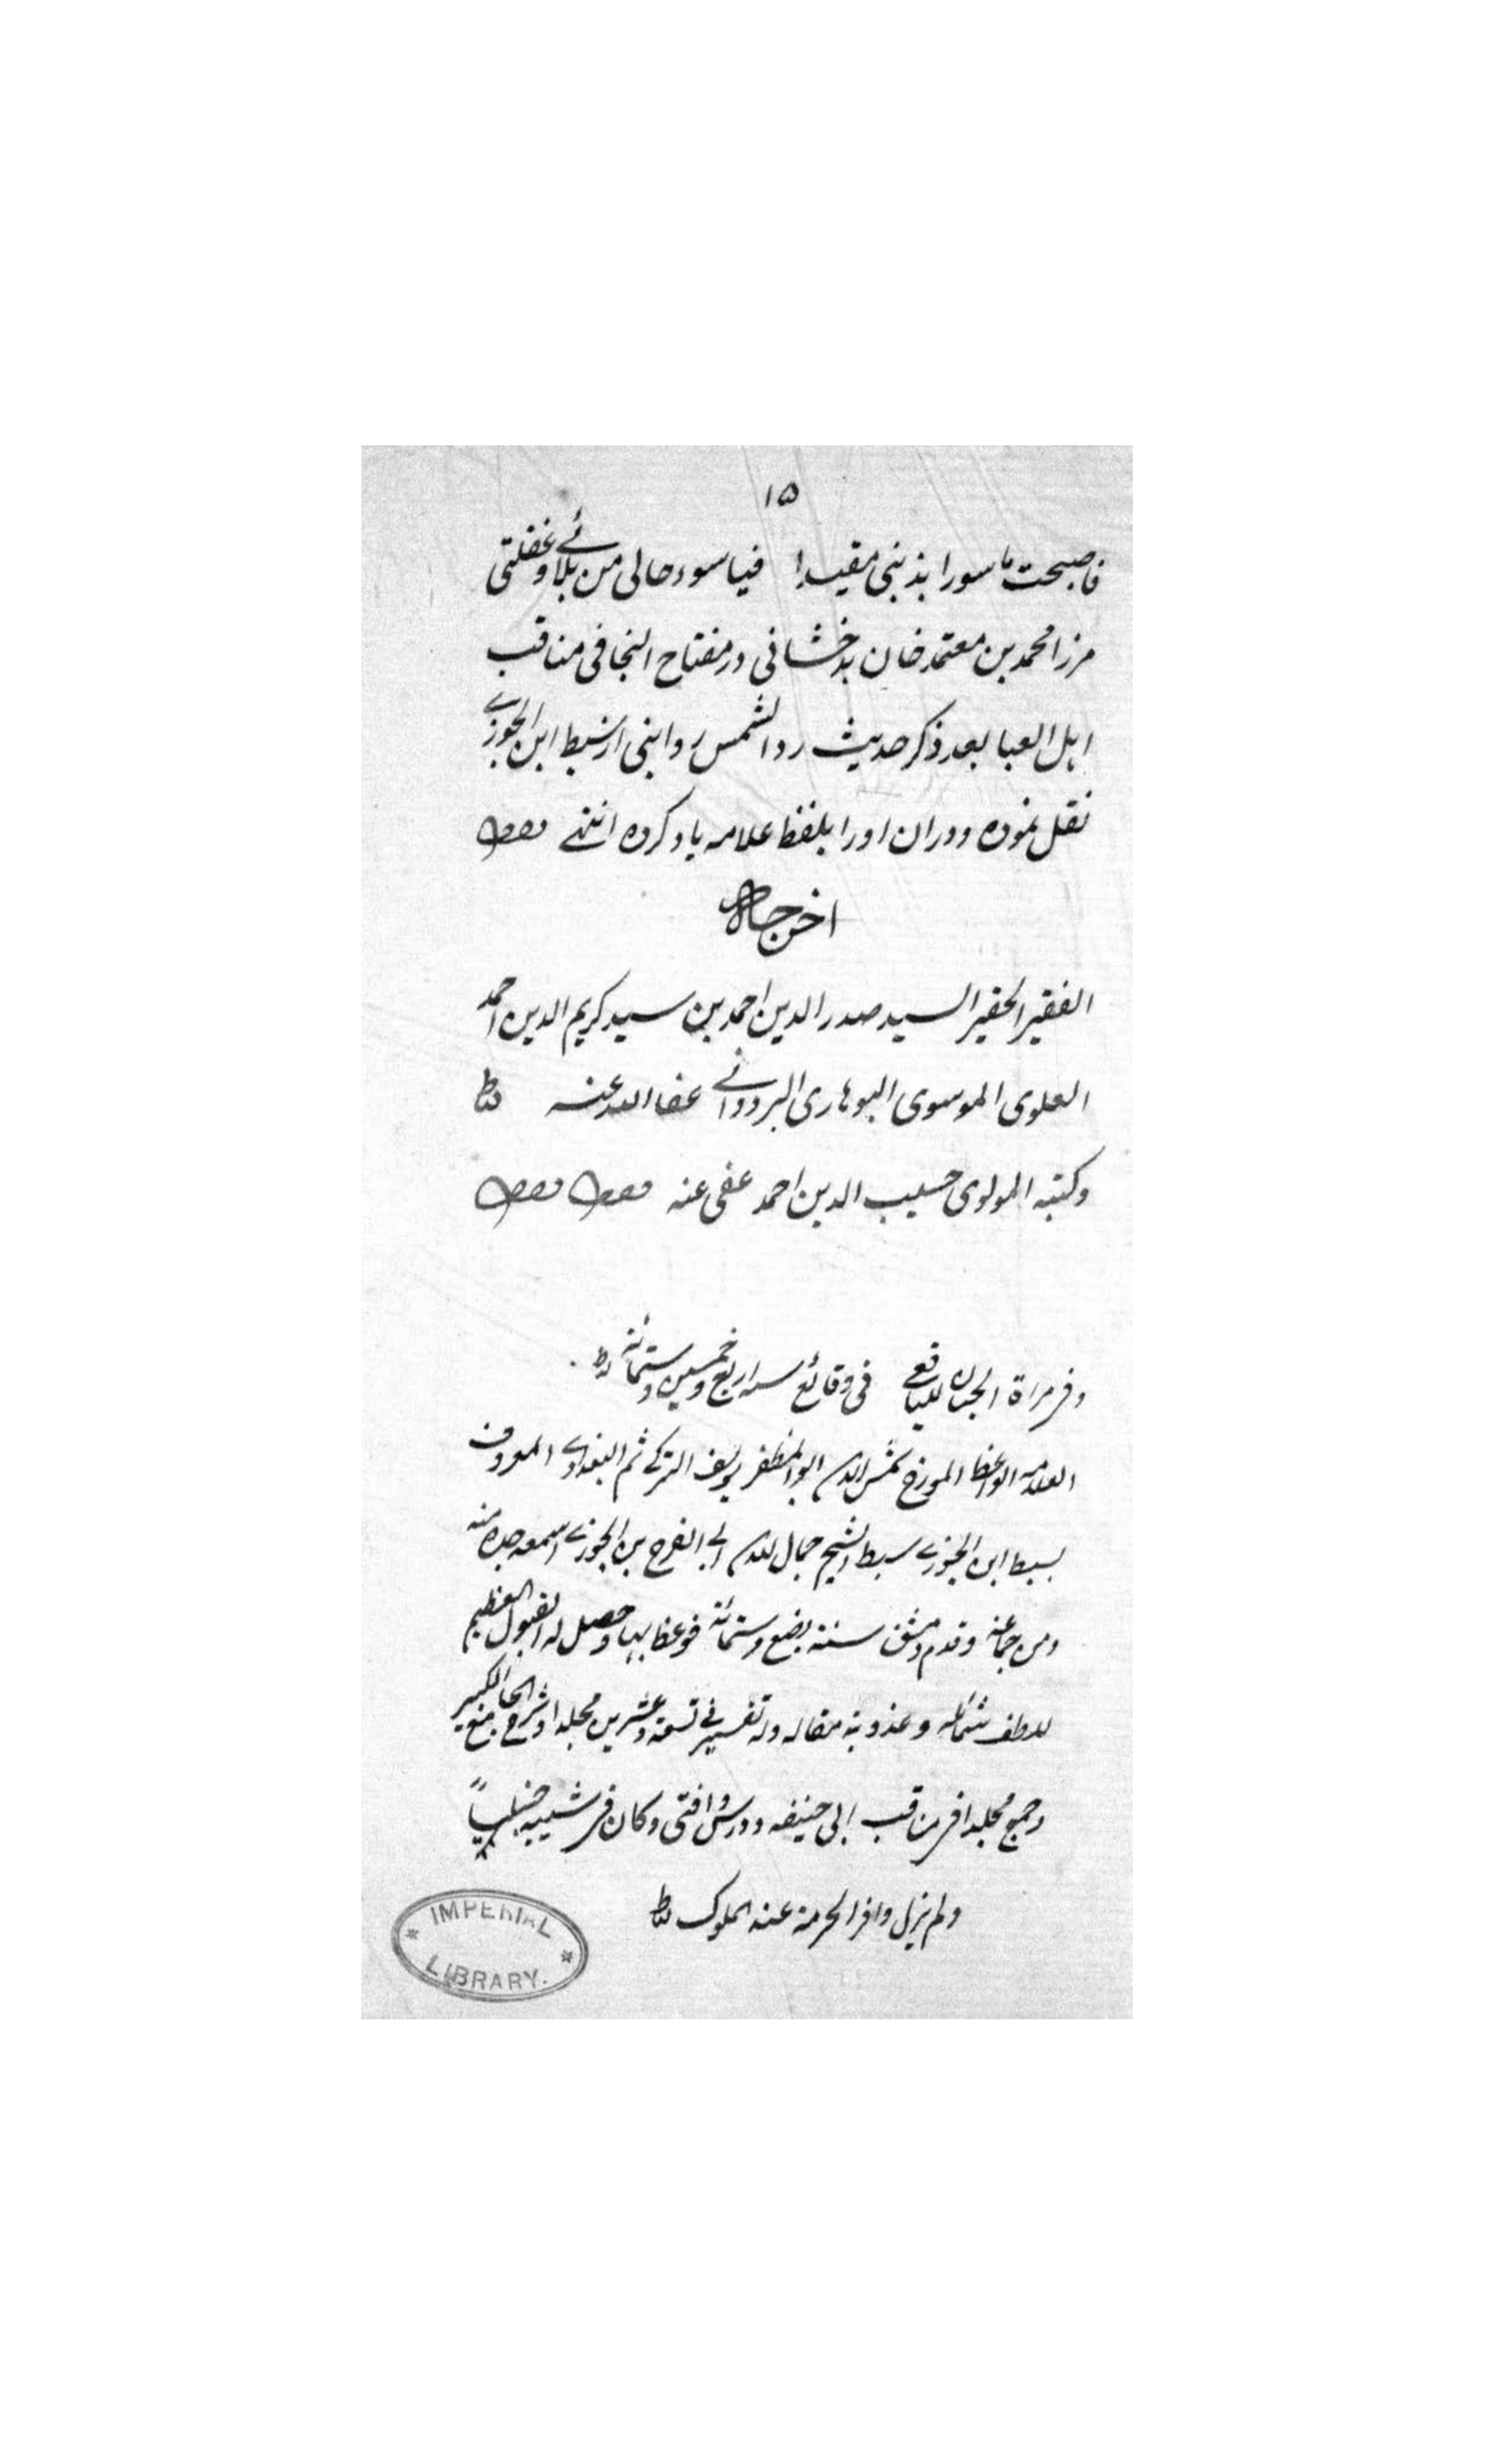 ۱۵
فاصبحت ماسورا بذنبی مقیدا فیا سوء حالی من بلائے وغفلتی
مرزا محمد بن معتمد خان بدخشانی در مفتاح النجا فی مناقب
اہل العبا بعد ذکر حدیث ردالشمس روایتی از سبط ابن الجوزے
نقل نمودہ و دران اورا بلفظ علامہ یاد کردہ انتہے
اخرجہ
الفقیر الحقیر السید صدرالدین احمد بن سید کریم الدین احمد
العلوی الموسوی البوہاری البردوانے عفا اللہ عنہ
وکتبہ المولوی حسیب الدین احمد عفی عنہ
وفی مراۃ الجنان للیافعے فی وقائع سنہ اربع وخمسین وستمائۃ
العلامہ الواعظ المورخ شمس الدین ابو المظفر یوسف الترکے ثم البغدادے المعروف
بسبط ابن الجوزے سبط الشیخ جمال الدین ابی الفرج بن الجوزے اسمعہ جدہ منہ
ومن جماعۃ وقدم دمشق سنۃ بضع وستمائۃ فوعظ بہا وحصل لہ القبول العظیم
للطف شمائلہ وعذوبۃ مقالہ ولہ تفسیر فے تسعۃ وعشرین مجلدا وشرح الجامع الکبیر
وجمع مجلدا فی مناقب ابی حنیفہ ودرس وافتی وکان فی شبیبہ حنبلیاً
ولم یزل وافر الحرمۃ عند الملوک
IMPERIAL
LIBRARY.